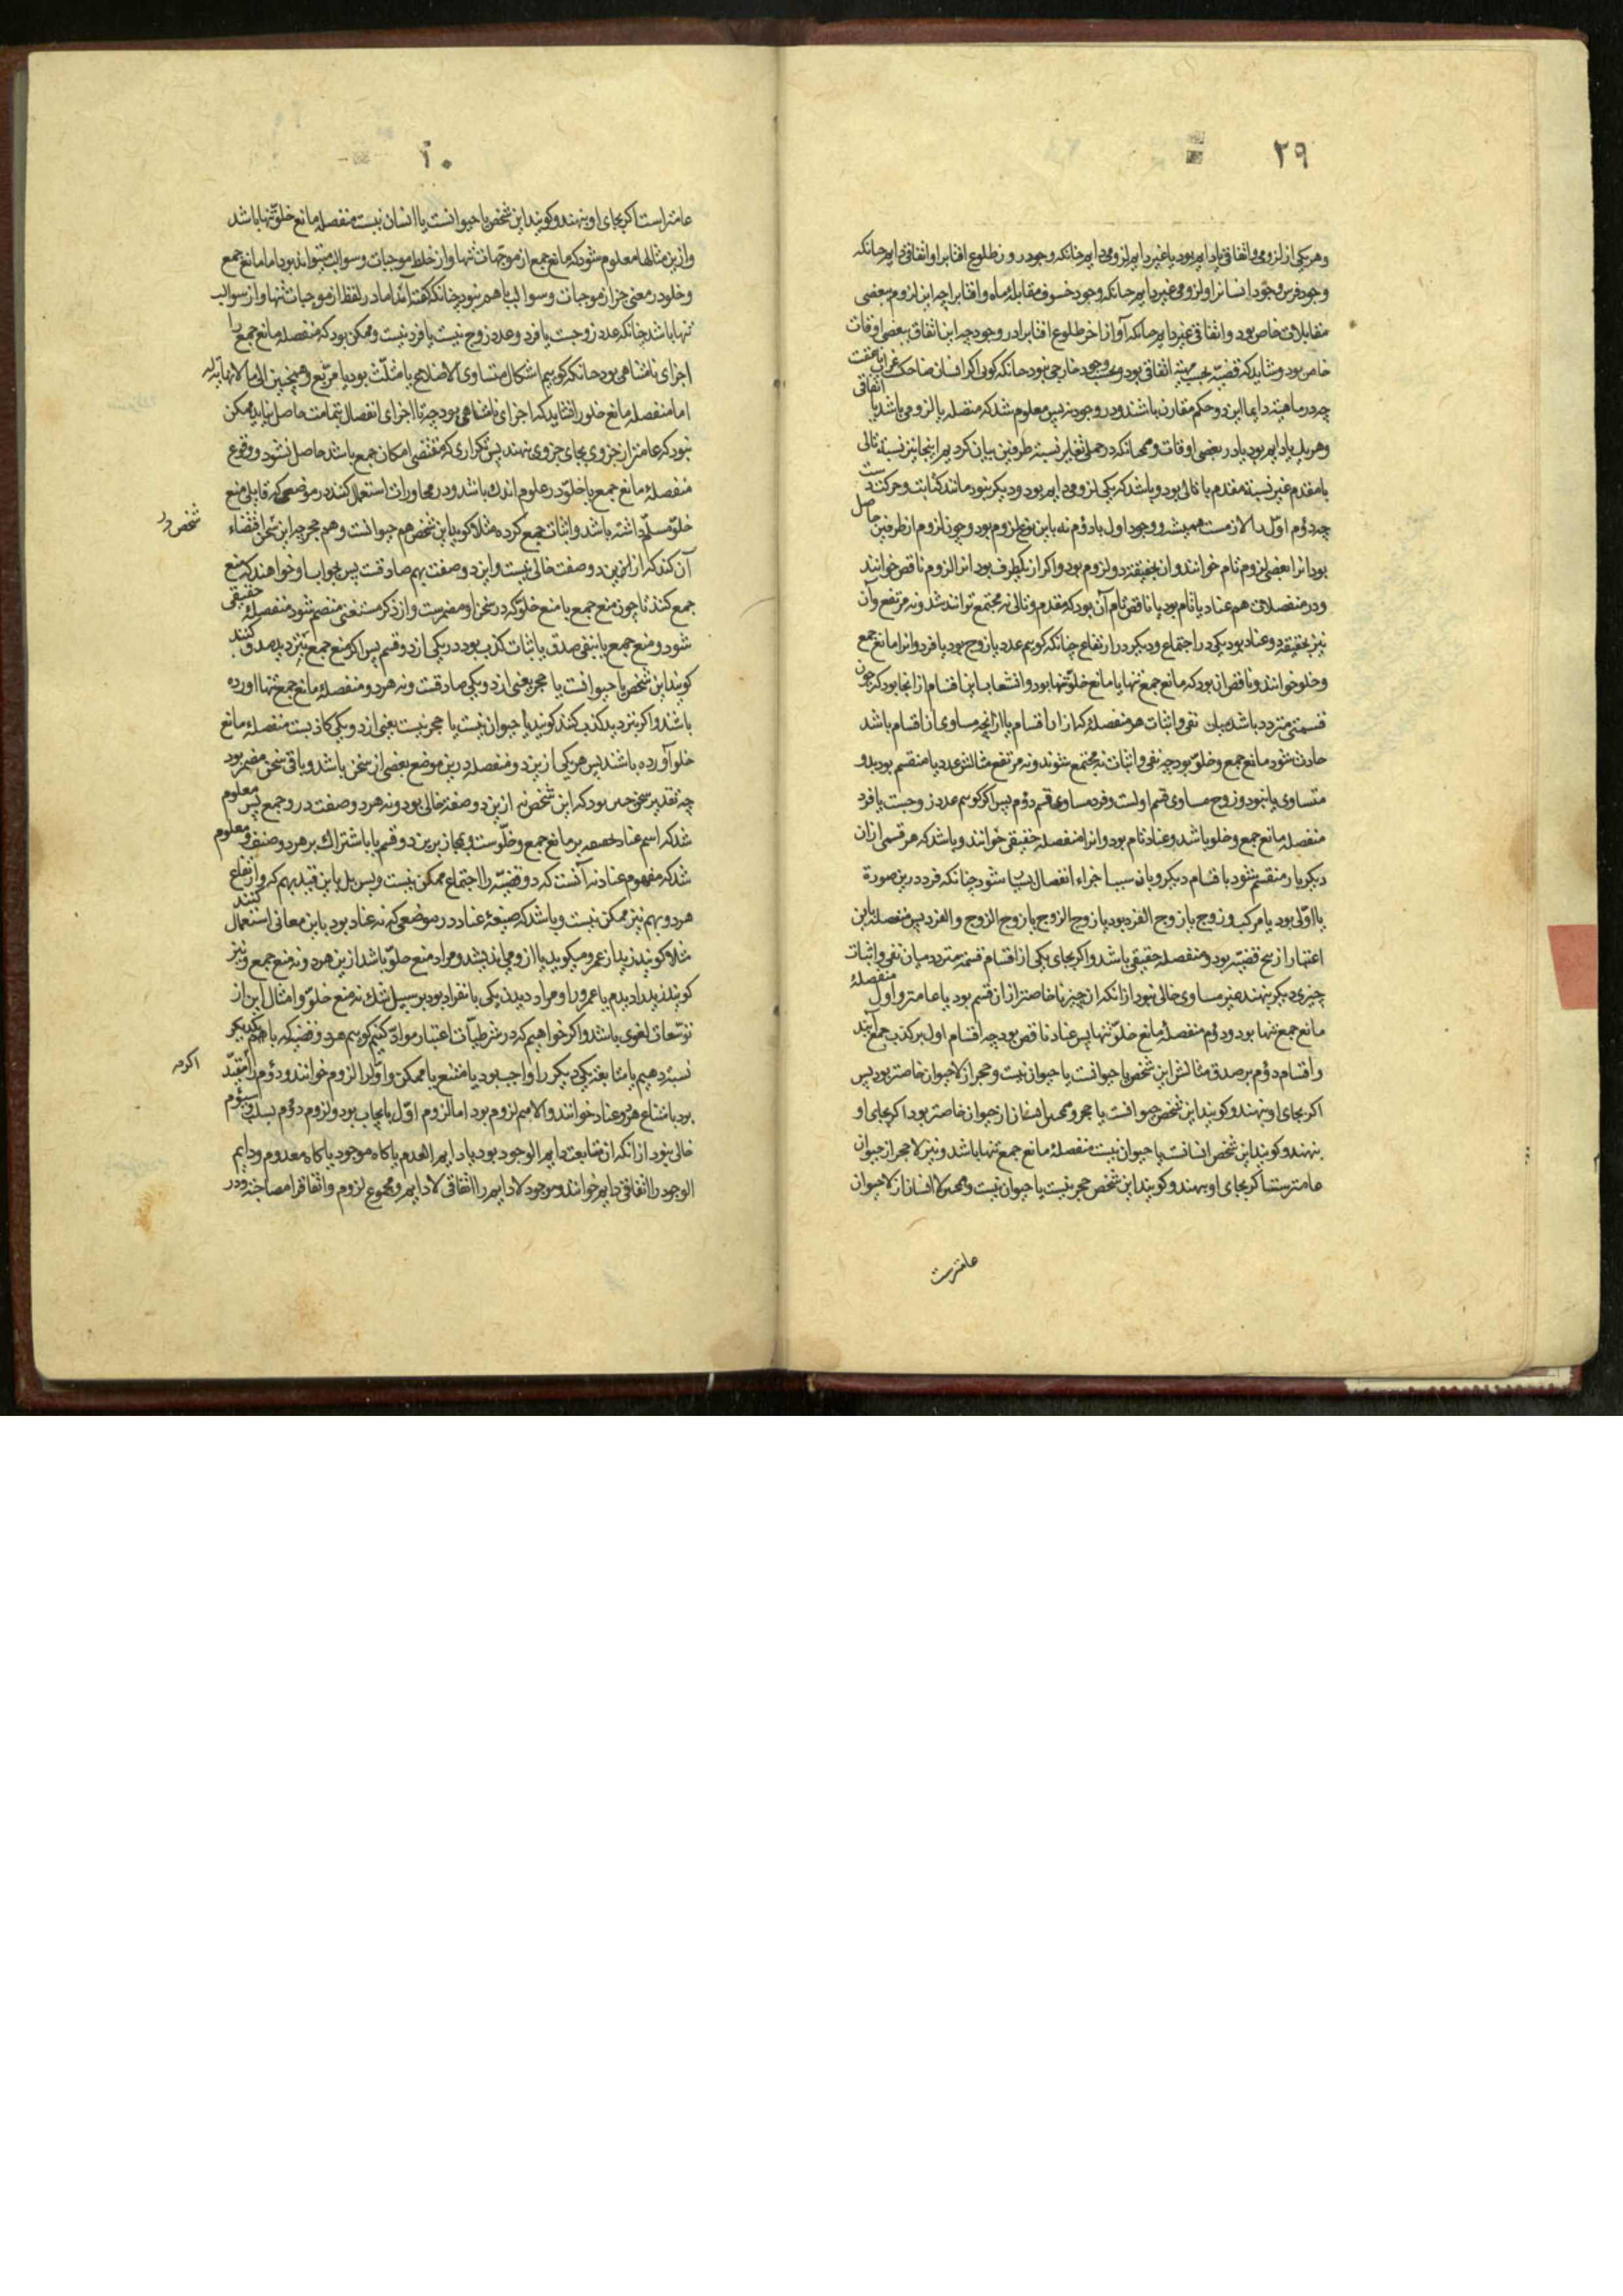 ۲۹
وهریکی از لزومی واتفاقی یا دایم بود یا غیر دایم لزومی دایم چنانکه وجود روز طلوع افتابرا واتفاقی دایم چنانکه
وجود فرس وجود انسانرا ولزومی غیر دایم چنانکه وجود خسوف مقابلهٔ ماه وافتابرا چه این لزوم ببعضی
مقابلات خاص بود واتفاقی غیر دایم چنانکه آواز طلوع افتابرا در وجود چه این اتفاق ببعضی اوقات
خاص بود وشاید که قضیه بحسب اتفاقی بود وبحسب وجود خارجی نبود چنانکه کوئی اکر انسان ضاحک
چه در ماهیة دایما این دو حکم مقارن باشند ودر وجود نه پس معلوم شد که متصله یا لزومی باشد یا اتفاقی
وهریک یا دایم بود یا در بعضی اوقات وهمچنانکه در حملی تغایر نسبة طرفین بیان کردیم اینجا نیز نسبة تالی
با مقدم غیر نسبة مقدم با تالی بود وباشد که یکی لزومی دایم بود ودیکر نبود مانند کتابت وحرکت دست
چه دوم اول را لازمست همیشه ووجود اول با دوم نه باین نوع لزوم بود وچون لزوم از طرفین حاصل
بود انرا بعضی لزوم تام خوانند وان بحقیقة دو لزوم بود واکر از یکطرف بود انرا لزوم ناقص خوانند
ودر منفصلات هم عناد یا تام بود یا ناقص تام آن بود که مقدم وتالی نه مجتمع توانند شد ونه مرتفع وآن
نیز بحقیقة دو عناد بود یکی در اجتماع ودیکر در ارتفاع چنانکه کوییم عدد یا زوج بود یا فرد وانرا مانع جمع
وخلو خوانند وناقص ان بود که مانع جمع تنها یا مانع خلو تنها بود وانشعاب این اقسام از انجا بود که چون
قسمتی متردد باشد میان نفی واثبات هر منفصلهٔ که از ان اقسام یا از انچه مساوی ان اقسام باشد
حادث شود مانع جمع وخلو بود چه نفی واثبات نه مجتمع شوند ونه مرتفع مثالش عدد یا منقسم بود بدو
متساوی یا نبود وزوج مساوی قسم اولست وفرد مساوی قسم دوم پس اکر کوییم عدد زوجست یا فرد
منفصلهٔ مانع جمع وخلو باشد وعناد تام بود وانرا منفصلهٔ حقیقی خوانند وباشد که هر قسمی از ان
دیکر بار منقسم شود باقسام دیکر وبان سبب اجزاء انفصال بسیار شود چنانکه فرد درین صورة
یا اولی بود یا مرکب وزوج یا زوج الفرد بود یا زوج الزوج یا زوج الزوج والفرد پس منفصله باین
اعتبار از پنج قضیه بود ومنفصلهٔ حقیقی باشد واکر بجای یکی از اقسام قسمة متردد میان نفی واثبات
چیزی دیکر بنهند غیر مساوی خالی نبود از انکه ان چیز یا خاصتر از ان قسم بود یا عامتر واول منفصلهٔ
مانع جمع تنها بود ودوم منفصلهٔ مانع خلو تنها پس عناد ناقص بود چه اقسام اول بر کذب جمع آیند
واقسام دوم بر صدق مثالش این شخص یا حیوانست یا حیوان نیست وحجر از لاحیوان خاصتر بود پس
اکر بجای او بنهند وکویند این شخص حیوانست یا حجر وهمچنین انسان از حیوان خاصتر بود اکر بجای او
بنهند وکویند این شخص انسانست یا حیوان نیست منفصلهٔ مانع جمع تنها باشد ونیز لاحجر از حیوان
عامترست اکر بجای او بنهند وکویند این شخص حجر نیست یا حیوان نیست وهمچنین لاانسان از لاحیوان
عامترست
۳۰
عامتر است اکر بجای او بنهند وکویند این شخص یا حیوانست یا انسان نیست منفصلهٔ مانع خلو تنها باشد
وازین مثالها معلوم شود که مانع جمع از موجبات تنها واز خلط موجبات وسوالب میتواند بود اما مانع جمع
وخلو در معنی جز از موجبات وسوالب باهم نبود چنانکه کفته‌اند اما در لفظ از موجبات تنها واز سوالب
تنها باشد چنانکه عدد زوجست یا فرد وعدد زوج نیست یا فرد نیست وممکن بود که منفصلهٔ مانع جمع را
اجزای نامتناهی بود چنانکه کوییم اشکال متساوی الاضلاع یا مثلث بود یا مربع وهمچنین الی ما لا نهایة له
اما منفصلهٔ مانع خلو را نشاید که اجزای نامتناهی بود چه تا اجزای انفصال بتمامت حاصل نیاید ممکن
نبود که عامتر از جزوی بجای جزوی بنهند پس تکراری که مقتضی امکان جمع باشد حاصل نشود ووقوع
منفصلهٔ مانع جمع یا خلو در علوم اندک باشد ودر محاورات استعمال کنند در موضعی که قایلی منع
خلو مسلم داشته باشد واثبات جمع کرده مثلا کوید این شخص هم حیوانست وهم حجر چه این سخن اقتضاء
شخص در
آن کند که ازین دو صفت خالی نیست واین دو صفت بهم صادقست پس بجواب او خواهند که منع
جمع کنند تا چون منع جمع با منع خلو که در سخن او مضمرست واز ذکر مستغنی منضم شود منفصلهٔ حقیقی
شود ومنع جمع یا بنفی صدق یا اثبات کذب بود در یکی از دو قسم پس اکر منع جمع بتردید صدق کنند
کویند این شخص یا حیوانست یا حجر یعنی از دو یکی صادقست ونه هر دو ومنفصلهٔ مانع جمع تنها اورده
باشند واکر بتردید کذب کنند کویند یا حیوان نیست یا حجر نیست یعنی از دو یکی کاذبست منفصلهٔ مانع
خلو آورده باشند پس هر یکی ازین دو منفصله درین موضع بعضی از سخن باشد وباقی سخن مضمر بود
چه تقدیر سخن چنین بود که این شخص نه ازین دو صفة خالی بود ونه هر دو صفت درو جمع پس معلوم
شد که اسم عناد بر مانع جمع وخلوست وبمجاز برین دو قسم یا باشتراک بر هر دو صنف ومعلوم
شد که مفهوم عناد نه آنست که دو قضیه را اجتماع ممکن نیست وبس بل باین قید بهم که وارتفاع
هر دو بهم نیز ممکن نیست وباشد که صیغهٔ عناد در موضعی که نه عناد بود باین معانی استعمال کنند
مثلا کویند زید از عمرو میکوید یا ازو می‌اندیشد ومراد منع خلو باشد ازین هر دو نه منع جمع ونیز
کویند زید را دیدم یا عمرو را ومراد دیدن یکی بانفراد بود بر سبیل شک نه منع خلو وامثال این از
توسعات لغوی باشد واکر خواهیم که در شرطیات اعتبار مواد کنیم کوییم هر دو قضیه که با یکدیکر
نسبة دهیم یکی دیکر را واجب بود یا ممتنع یا ممکن واول را لزوم خوانند ودوم را
اکرچه
بود بامتناع هر دو عناد خوانند والا هم لزوم بود اما لزوم اول بایجاب بود ولزوم دوم بسلب وسیوم
خالی نبود از انکه ان متابعت دایم الوجود بود یا دایم العدم یا کاه موجود یا کاه معدوم ودایم
الوجود را اتفاقی دایم خوانند وموجود لادایم را اتفاقی لادایم ومجموع لزوم واتفاق را مصاحبة ودر